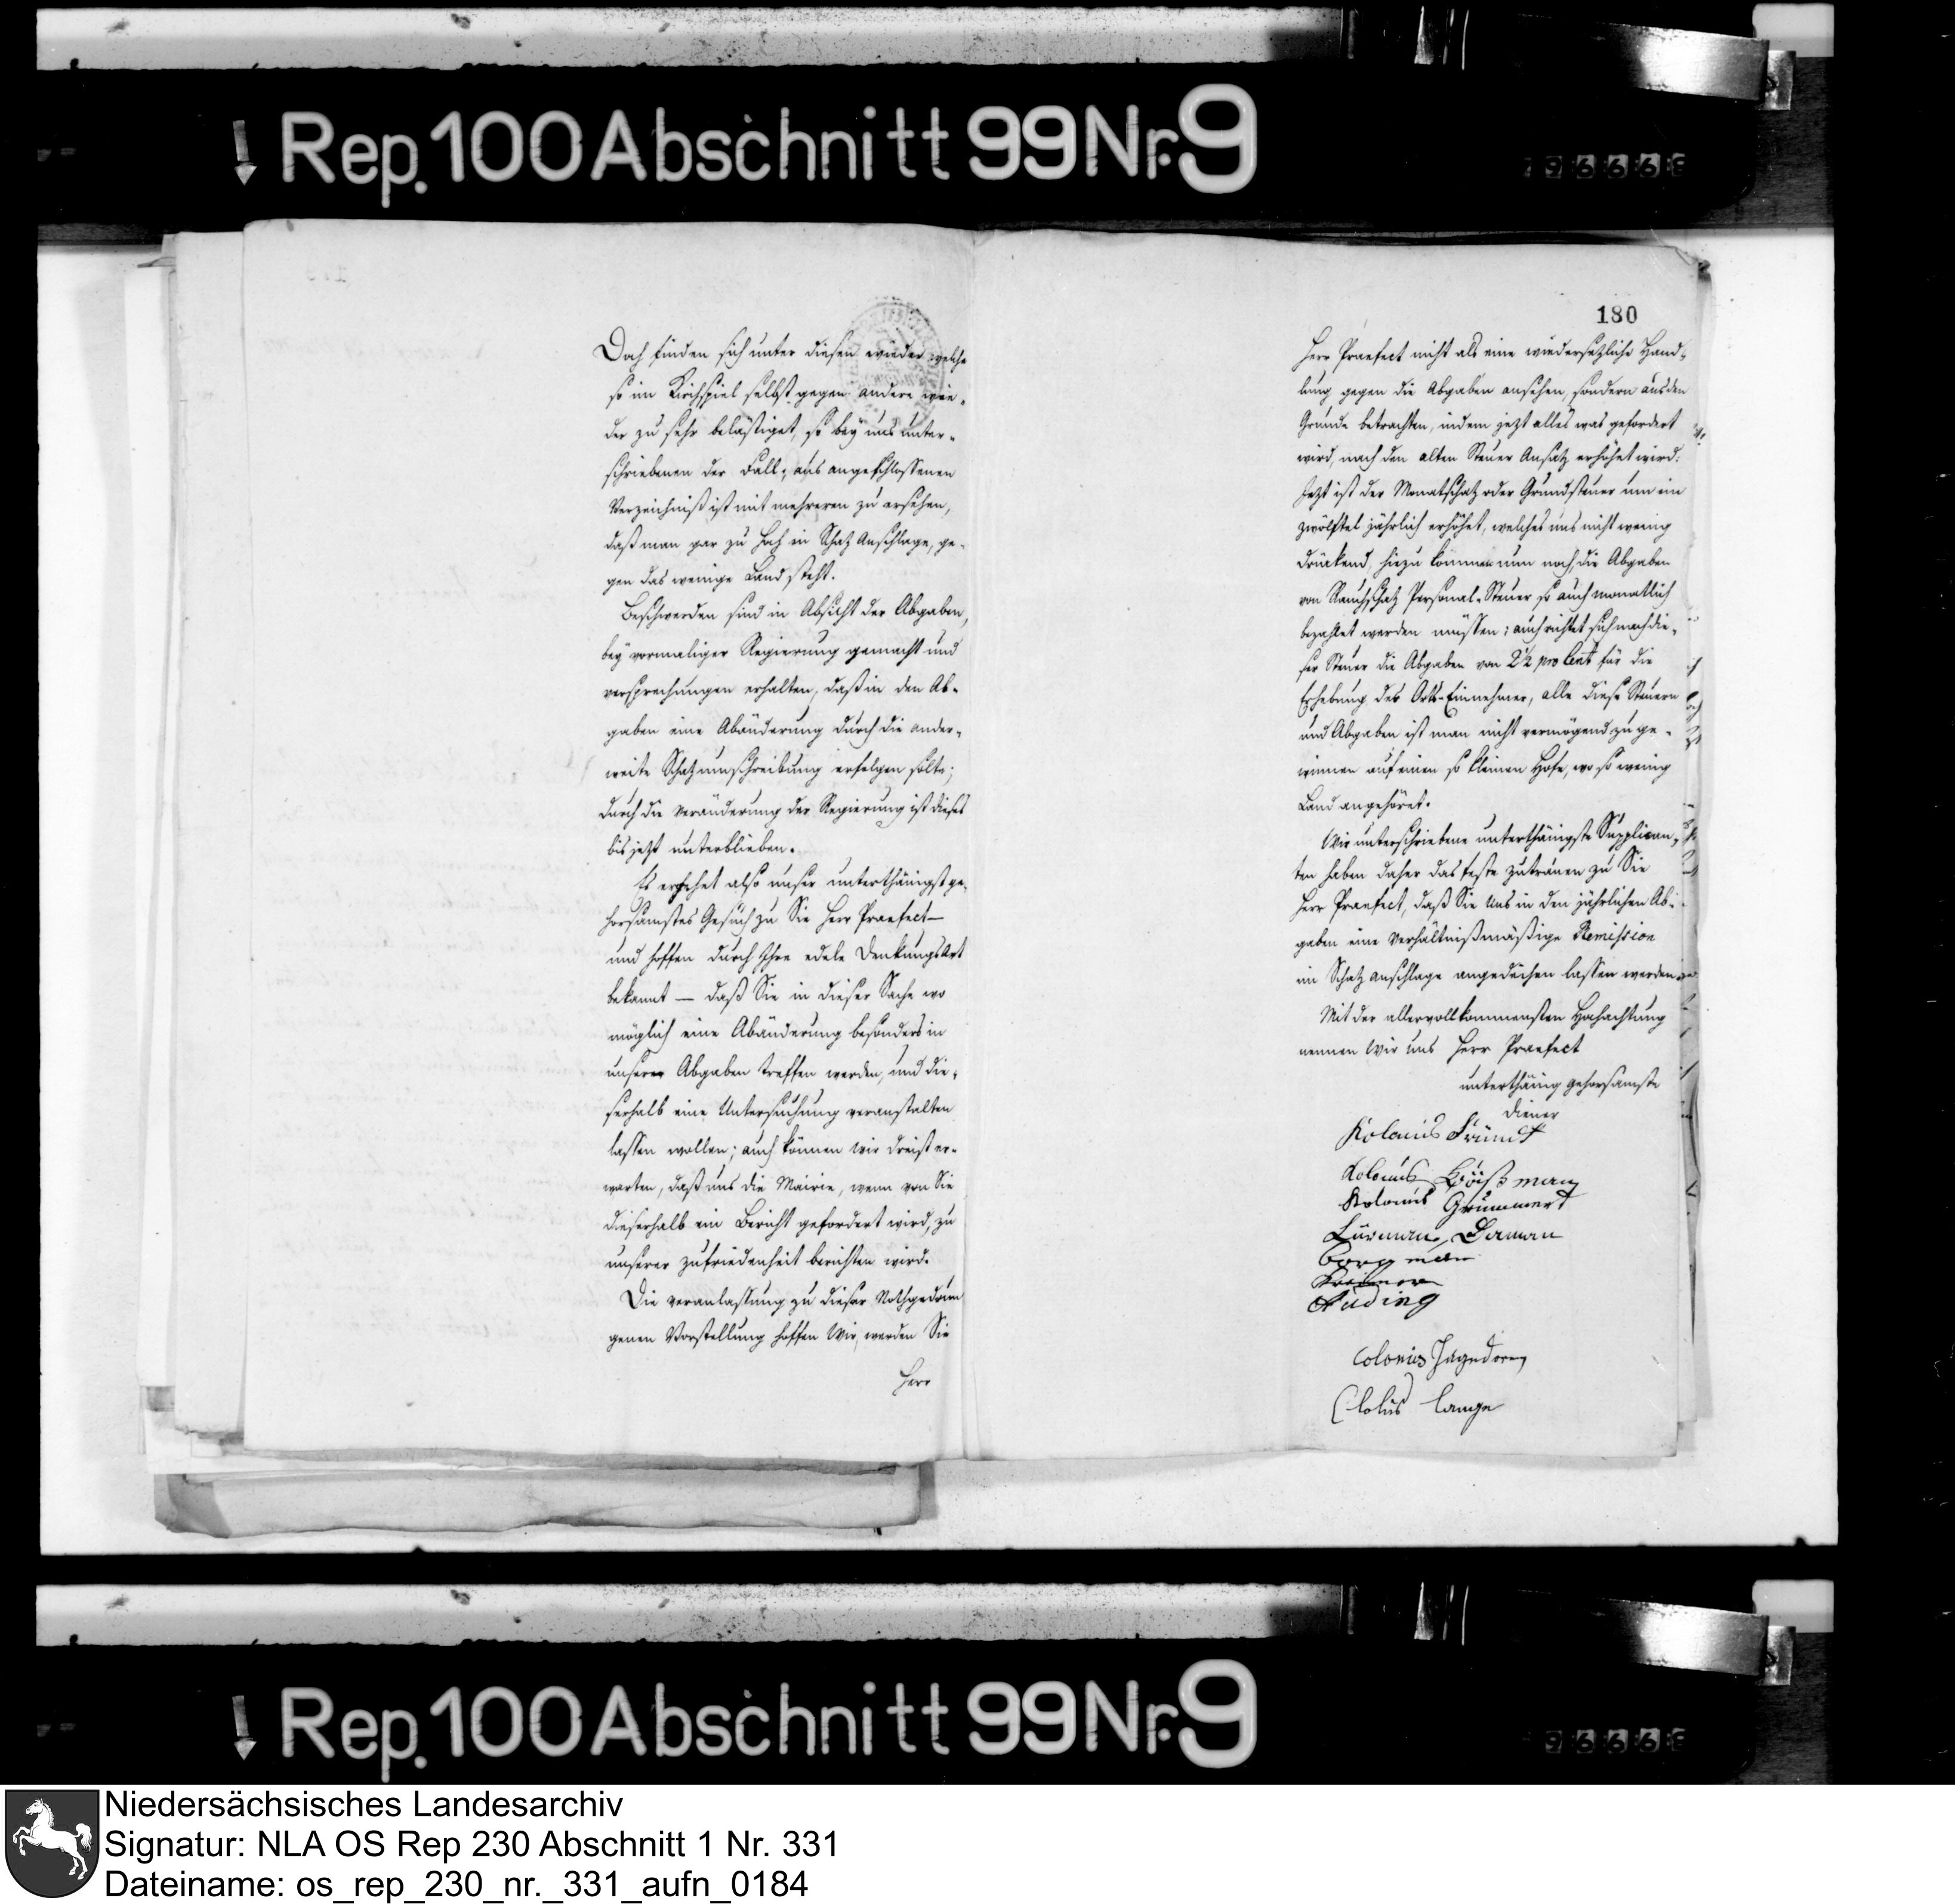 Rep. 100 Abschnitt 99 Nr. 9
Doch finden sich unter diesen wieder welche
so im Kirchspiel selbst gegen andere wie-
der zu sehr belästiget, so bey uns unter-
schriebenen der Fall; aus angeschlossenen
Verzeichniß ist mit mehreren zu ersehen,
daß man gar zu hoch in Schatz Anschlage, ge-
gen das wenige Land steht.
Beschwerden sind in Absicht der Abgaben,
bey vormaliger Regierung gemacht und
versprechungen erhalten, daß in den Ab-
gaben eine Abänderung durch die ander-
weite Schatzumschreibung erfolgen solte;
durch die Veränderung der Regierung ist dieses
bis jetzt unterblieben.
Es ergehet also unser unterthänigst ge-
horsamstes Gesuch zu Sie Herr Praefect—
und hoffen durch Ihre edele Denkungsart
bekannt — daß Sie in dieser Sache wo
möglich eine Abänderung besonders in
unserer Abgaben treffen werden, und die-
serhalb eine Untersuchung veranstalten
lassen wollen; auch können wir dreist er-
warten, daß uns die Mairie, wenn von Sie
dieserhalb ein Bericht gefordert wird, zu
unserer zufriedenheit berichten wird.
Die veranlassung zu dieser Nothgedrun
genen Vorstellung hoffen Wir, werden Sie
Herr
180
Herr Praefect nicht als eine wiedersetzliche Hand-
lung gegen die Abgaben ansehen, sondern aus den
Grunde betrachten, indem jetzt alles was gefordert
wird, nach den alten Steuer Ansatz erhöhet wird.
Jetzt ist der Monatschatz oder Grundsteuer um ein
zwölftel jährlich erhöhet, welches uns nicht wenig
drückend, hiezu kommen nun noch, die Abgaben
von Rauchschatz Personal-Steuer so auch monatlich
bezahlet werden müssen; auch richtet sich nach die-
ser Steuer die Abgaben von 2½ pro Cent für die
Erhebung des Orts-Einnehmer, alle diese Steuern
und Abgaben ist man nicht vermögend zu ge-
winnen auf einen so kleinen Hofe, wo so wenig
Land angehöret.
Wir unterschriebene unterthänigste Supplican-
ten haben daher das feste zutrauen zu Sie
Herr Praefect, daß Sie Uns in den jährlichen Ab-
gaben eine Verhältnißmäßige Remission
im Schatz anschlage angedeihen lassen werden
Mit der allervollkommensten Hochachtung
nennen Wir uns Herr Praefect
unterthänig gehorsamste
Diener
Kolonus Fründt
Kolonus Bößman
Kolonus Grummert
Lürman, Derman
Borgman
Kreimer
Aüding
Colonus Jagedorn
Colonus Lange
Rep. 100 Abschnitt 99 Nr. 9
Niedersächsisches Landesarchiv
Signatur: NLA OS Rep 230 Abschnitt 1 Nr. 331
Dateiname: os_rep_230_nr._331_aufn_0184